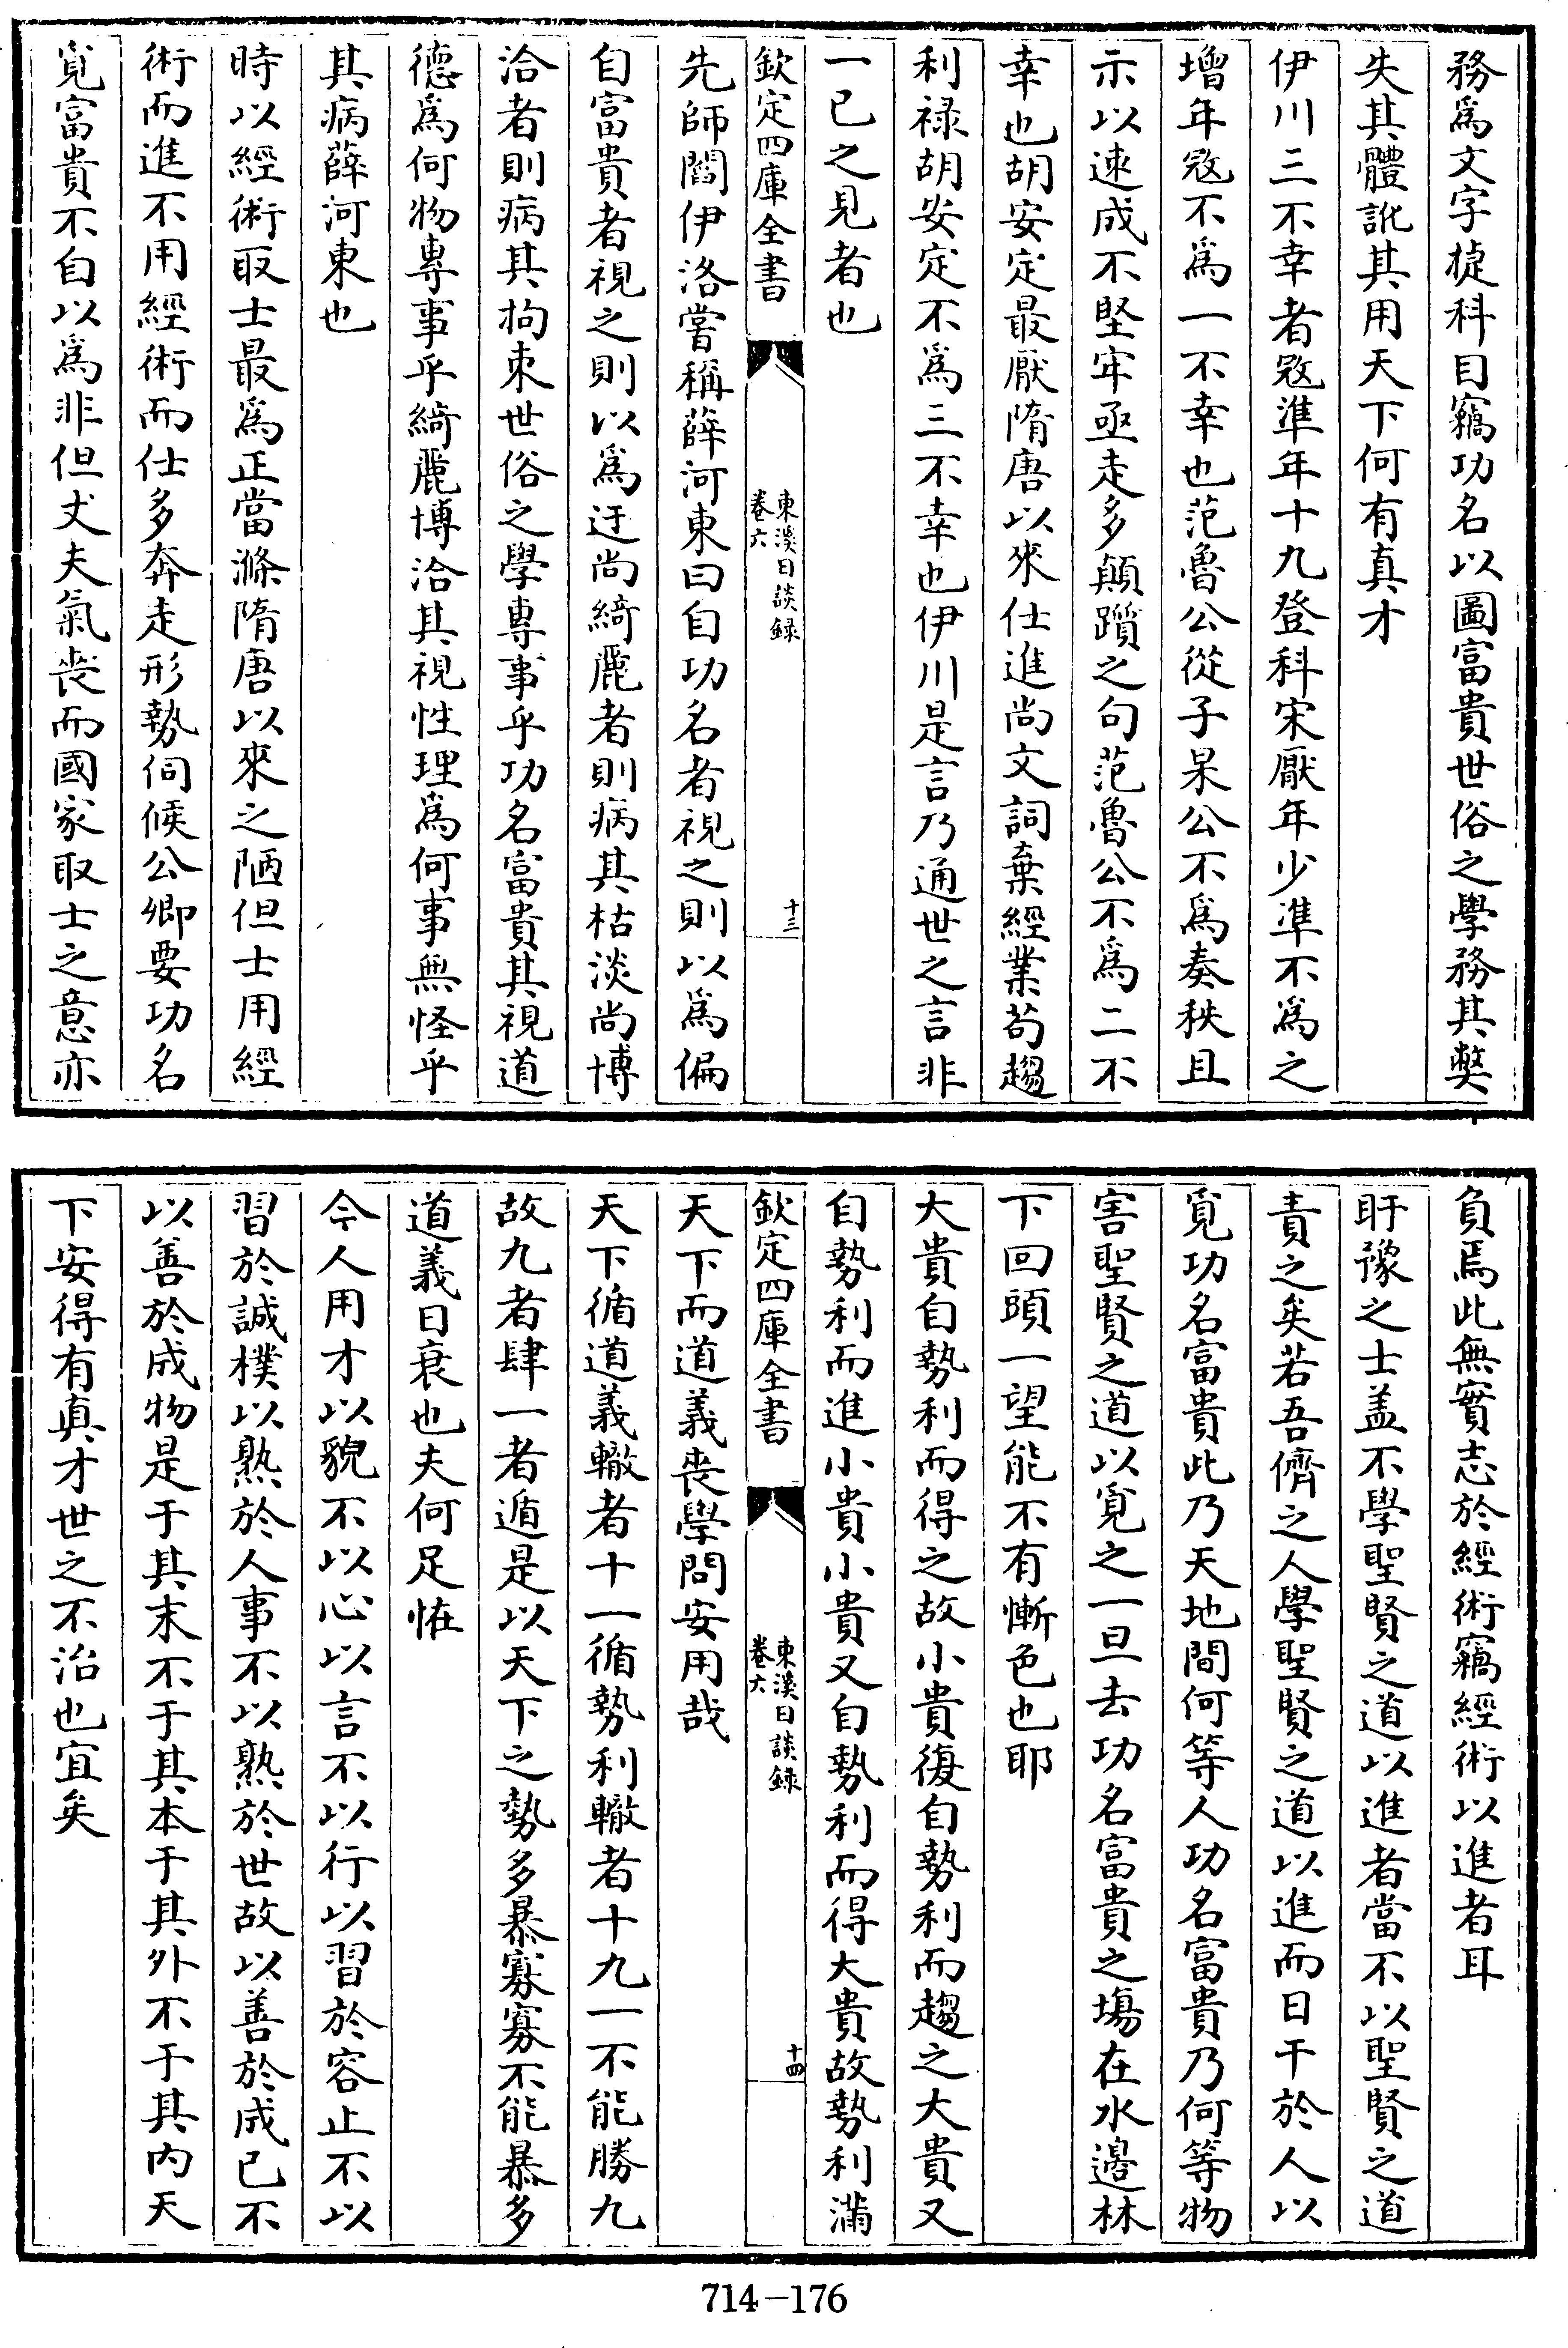 務爲文字捷科目竊功名以圖富貴世俗之學務其獘
失其體訛其用天下何有真才
伊川三不幸者㓂準年十九登科宋厭年少凖不爲之
增年㓂不爲一不幸也范魯公從子杲公不爲奏秩且
示以速成不堅牢亟走多顛躓之句范魯公不爲二不
幸也胡安定最厭隋唐以來仕進尚文詞棄經業苟趨
利禄胡安定不爲三不幸也伊川是言乃通世之言非
一已之見者也
欽定四庫全書
東溪日談録
卷六
十三
先師閻伊洛嘗稱薛河東曰自功名者視之則以爲偏
自富貴者視之則以爲迂尚綺麗者則病其枯淡尚博
洽者則病其拘束世俗之學專事乎功名富貴其視道
德爲何物專事乎綺麗博洽其視性理爲何事無怪乎
其病薛河東也
時以經術取士最爲正當滌隋唐以來之陋但士用經
術而進不用經術而仕多奔走形勢伺候公卿要功名
覓富貴不自以爲非但丈夫氣喪而國家取士之意亦
負焉此無實志於經術竊經術以進者耳
盱豫之士盖不學聖賢之道以進者當不以聖賢之道
責之矣若吾儕之人學聖賢之道以進而日干於人以
覓功名富貴此乃天地間何等人功名富貴乃何等物
害聖賢之道以覓之一旦去功名富貴之塲在水邉林
下回頭一望能不有慚色也耶
大貴自勢利而得之故小貴復自勢利而趨之大貴又
自勢利而進小貴小貴又自勢利而得大貴故勢利滿
欽定四庫全書
東溪日談録
卷六
十四
天下而道義喪學問安用哉
天下循道義轍者十一循勢利轍者十九一不能勝九
故九者肆一者遁是以天下之勢多暴寡寡不能暴多
道義日衰也夫何足恠
今人用才以貌不以心以言不以行以習於容止不以
習於誠樸以熟於人事不以熟於世故以善於成已不
以善於成物是于其末不于其本于其外不于其内天
下安得有真才世之不治也宜矣
714-176